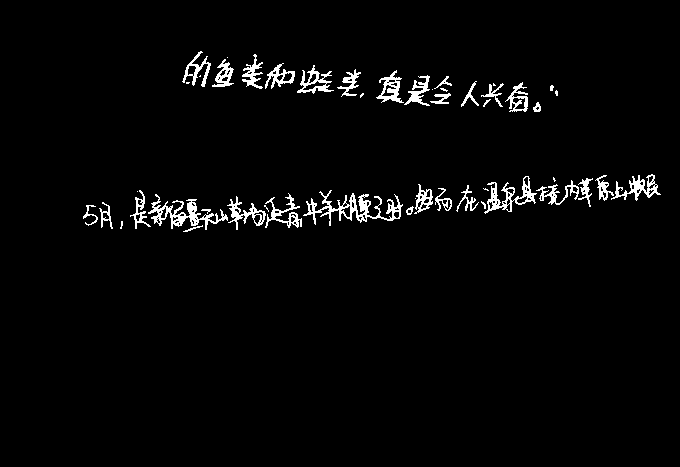 的鱼类和蛤类,真是令人兴奋。”
5月,是新疆天山草场返青,牛羊长膘之时。然而在温泉县境内草原上,牧民